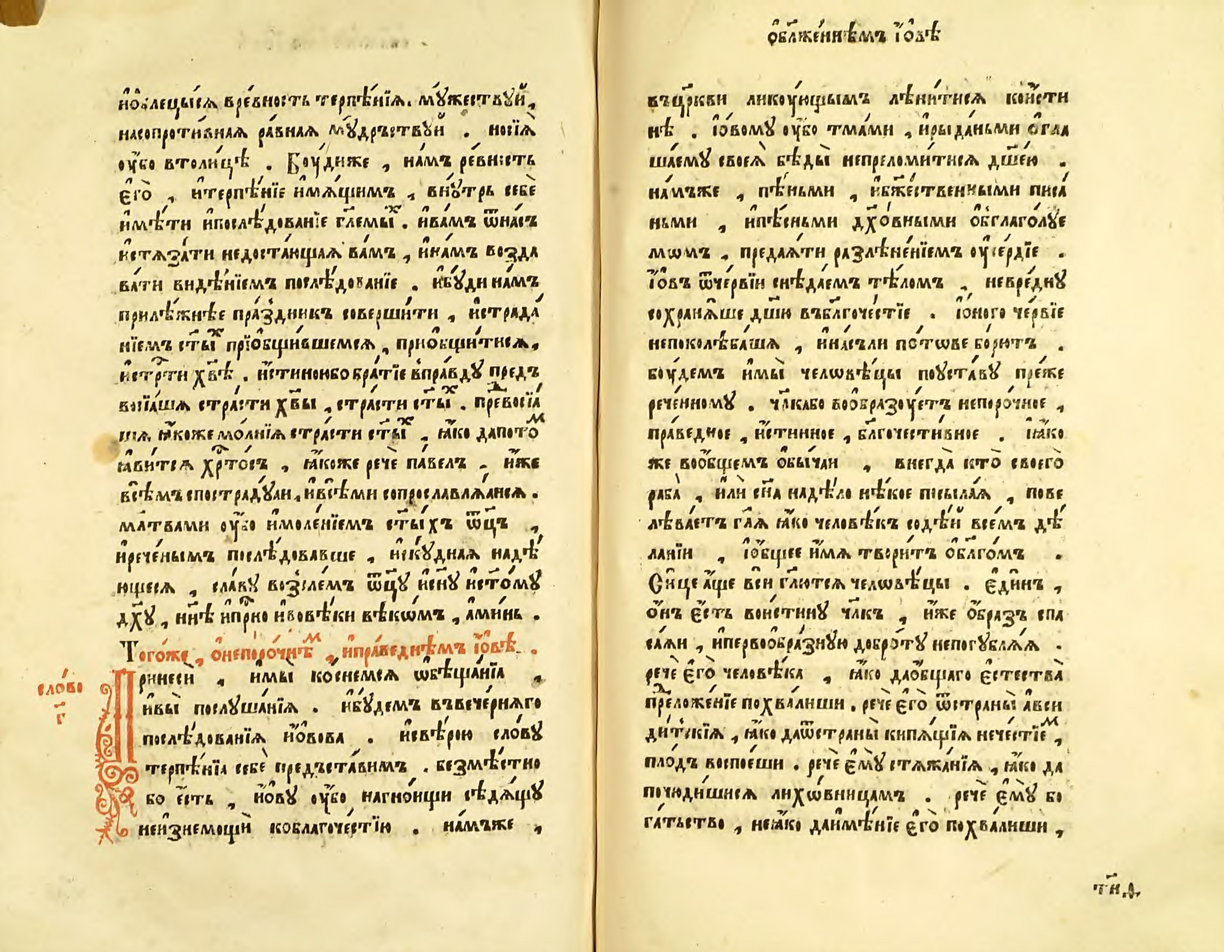 ѻ҆блже́ннѣмъ І҆ѡ́вѣ
и҆ѻ҆блецы́сѧ вре́вность терпѣ́нїѧ. мꙋ́жествꙋй,
насопроти́внаѧ ра́внаѧ мꙋ́дръствꙋй . носїѧ̀
ᲂу҆́бо втолицѣ̀ . Бꙋ́диже , на́мъ ре́вность
є҆гѡ̀ , и҆терпѣ́нїе и҆мѧ́щимъ , внꙋ́трь себѐ
и҆мѣ́ти и҆послѣ́дованїе гле́мыⷯ . и҆ва́мъ ѿна́съ
и҆стѧза́ти недоста́ющаѧ ва́мъ , и҆на́мъ возда
ва́ти ви́дѣнїемъ послѣ́дованїе . и҆бꙋ́ди на́мъ
прилѣ́жнѣе пра́здникъ соверши́ти , и҆страда́
нїемъ ст҃ы́ⷯ прїѻбщи́вшемсѧ , приѻбщи́тисѧ,
и҆стрⷭ҇ти хв҃ѣ . и҆́стинноибо бра́тїе впра́вдꙋ пре́дъ
восїѧ́шѧ стра́сти хв҃ы , стра́сти ст҃ы́ⷯ . превосїѧ́
шѧ ꙗ҆́коже мо́лнїѧ стра́сти ст҃ы́ⷯ , ꙗ҆́ко дапотоⷨ
ꙗ҆́витсѧ хрⷭ҇то́съ , ꙗ҆́коже речѐ па́велъ . и҆́же
всѣ́мъ спострада́ꙋаи , и҆все́ми сопрославлѧ́ѧисѧ .
мл҃твами ᲂу҆́бо и҆моле́нїемъ ст҃ы́хъ ѻ҆ц҃ъ ,
и҆рече́нымъ послѣ́довавше , неску́днаѧ надѣ́
ющесѧ , сла́вꙋ возсле́мъ ѻ҆ц҃ꙋ и҆сн҃ꙋ и҆ст҃о́мꙋ
дх҃ꙋ , нн҃ѣ и҆прⷭ҇но и҆вовѣ́ки вѣко́мъ , а҆ми́нь .
Того́же , ѻ҆непоро́чнѣⷨ , и҆пра́веднѣмъ і҆́ѡвѣ .
сло́во г҃
Принесѝ , и҆мы̀ ко́снемсѧ ѡ҆бѣща́нїѧ ,
и҆вы̀ послꙋ́шанїѧ . и҆бꙋ́демъ въвече́рнѧго
послѣ́дованїѧ и҆́ѡвова . и҆свѣ́рою сло́вꙋ
терпѣ́нїѧ себѐ предъста́вимъ . безмѣ́стно
бо є҆́сть , и҆́ѡвꙋ ᲂу҆́бо нагно́ищи сѣдѧ́щꙋ
неи҆знемощѝ коблагоче́стїю . на́мъже ,
въцр҃кви ликоую́щымъ лѣни́тисѧ ко́исти
нѣ . і҆́ѡвомꙋ ᲂу҆́бо тма́ми , и҆рыда́ньми ѻ҆гла
ша́емꙋ своеѧ̀ бѣды̀ непреломи́тисѧ дш҃е́ю .
на́мъже , пѣ́ньми , и҆бж҃е́ственными писа́
ньми , и҆пѣ́сньми дх҃о́вными ѻ҆бглаго́лꙋе
мѡмъ , предаѧ́ти разлѣне́нїемъ ᲂу҆се́рдїе .
І҆́ѡвъ ѿче́рвїи снѣда́емъ тѣ́ломъ , невре́днꙋ
сохранѧ́ше дш҃ю въблагоче́стїе . і҆ѻно́го че́рвїе
непоколѣба́шѧ , и҆на́съли по́тове бо́рютъ .
бꙋ́демъ и҆мы̀ человѣ́цы поꙋста́вꙋ пре́же
рече́нномꙋ . чл҃ка́бо воѻбразꙋ́етъ непоро́чное ,
пра́ведное , и҆́стинное , благочести́вное . ꙗ҆́ко
же воѻ́бщемъ ѻ҆бы́чаи , внегда̀ кто̀ своегѡ̀
раба̀ , и҆лѝ сн҃а надѣ́ло нѣ́кое посыла́ѧ , пове
лѣва́етъ гл҃ѧ ꙗ҆́ко человѣ́къ содѣ́й всѐмъ дѣ́
ланїи , і҆ѻ́бщее и҆́мѧ твори́тъ ѻ҆бл҃го́мъ .
Си́це а҆́ще вси́ гл҃ютсѧ человѣ́цы . є҆ди́нъ ,
ѻ҆́нъ є҆́сть вои́стинꙋ чл҃къ , и҆́же ѻ҆́бразъ спа
са́ѧи , и҆первоѻбра́знꙋю добро́тꙋ непогꙋблѧ́ѧ .
речѐ є҆гѡ̀ человѣ́ка , ꙗ҆́ко даѻ́бщаго є҆стества̀
преложе́нїе похва́лиши . речѐ є҆гѡ̀ ѿстраны̀ а҆вси
ди́тскїѧ , ꙗ҆́ко даѿстраны̀ кипѧ́щїѧ нече́стїеⷨ ,
пло́дъ воспое́ши . речѐ є҆мꙋ̀ стѧжа́нїѧ , ꙗ҆́ко да
почюди́шисѧ лихо́вницамъ . речѐ є҆мꙋ̀ бо
га́тьство , неꙗ҆́ко даи҆мѣ́нїе є҆гѡ̀ похва́лиши ,